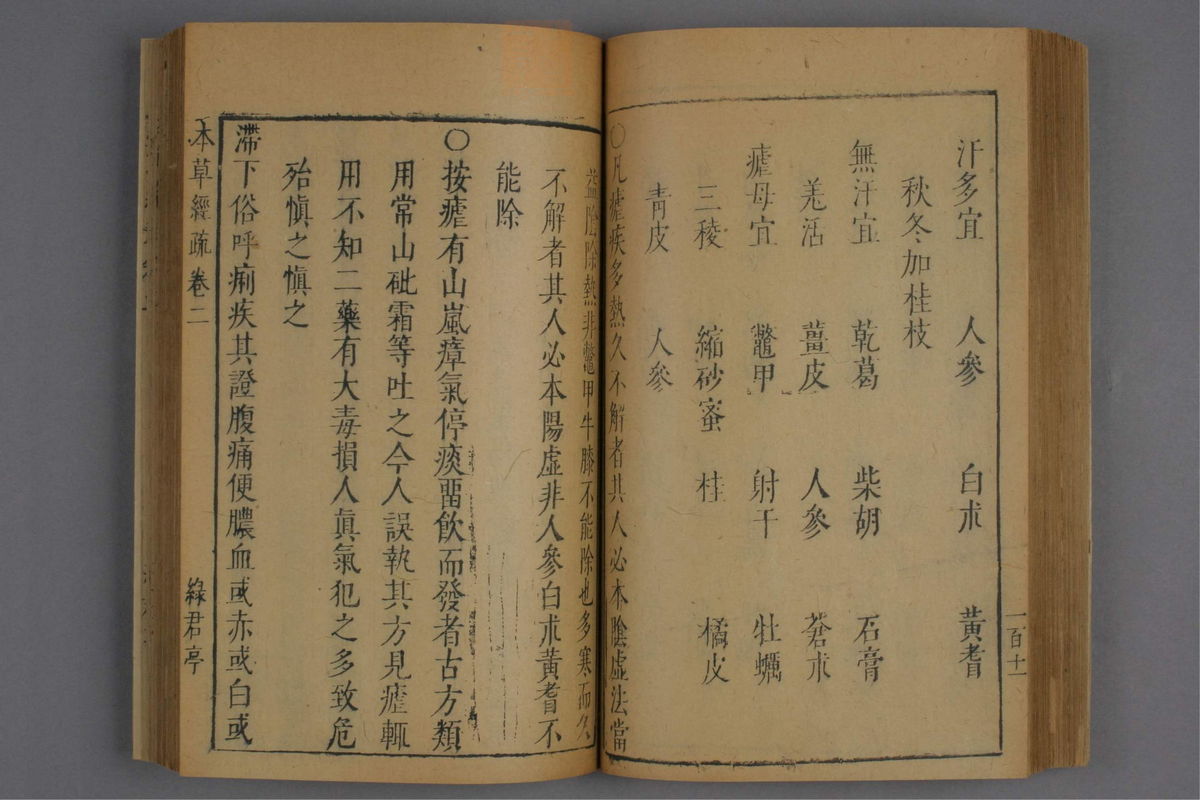 汗多宜　人參　白朮　黃耆
秋冬加桂枝
無汗宜　乾葛　柴胡　石膏
羗活　薑皮　人參　蒼朮
瘧母宜　鱉甲　射干　牡蠣
三稜　縮砂蜜　桂　橘皮
青皮　人參
○凡瘧疾多熱久不解者其人必本陰虛法當
一百十一
益陰除熱非鱉甲牛膝不能除也多寒而久
不解者其人必本陽虛非人參白朮黃耆不
能除
○按瘧有山嵐瘴氣停痰畱飲而發者古方類
用常山砒霜等吐之今人誤執其方見瘧輒
用不知二藥有大毒損人眞氣犯之多致危
殆愼之愼之
滯下俗呼痢疾其證腹痛便膿血或赤或白或
本草經疏　卷二　綠君亭